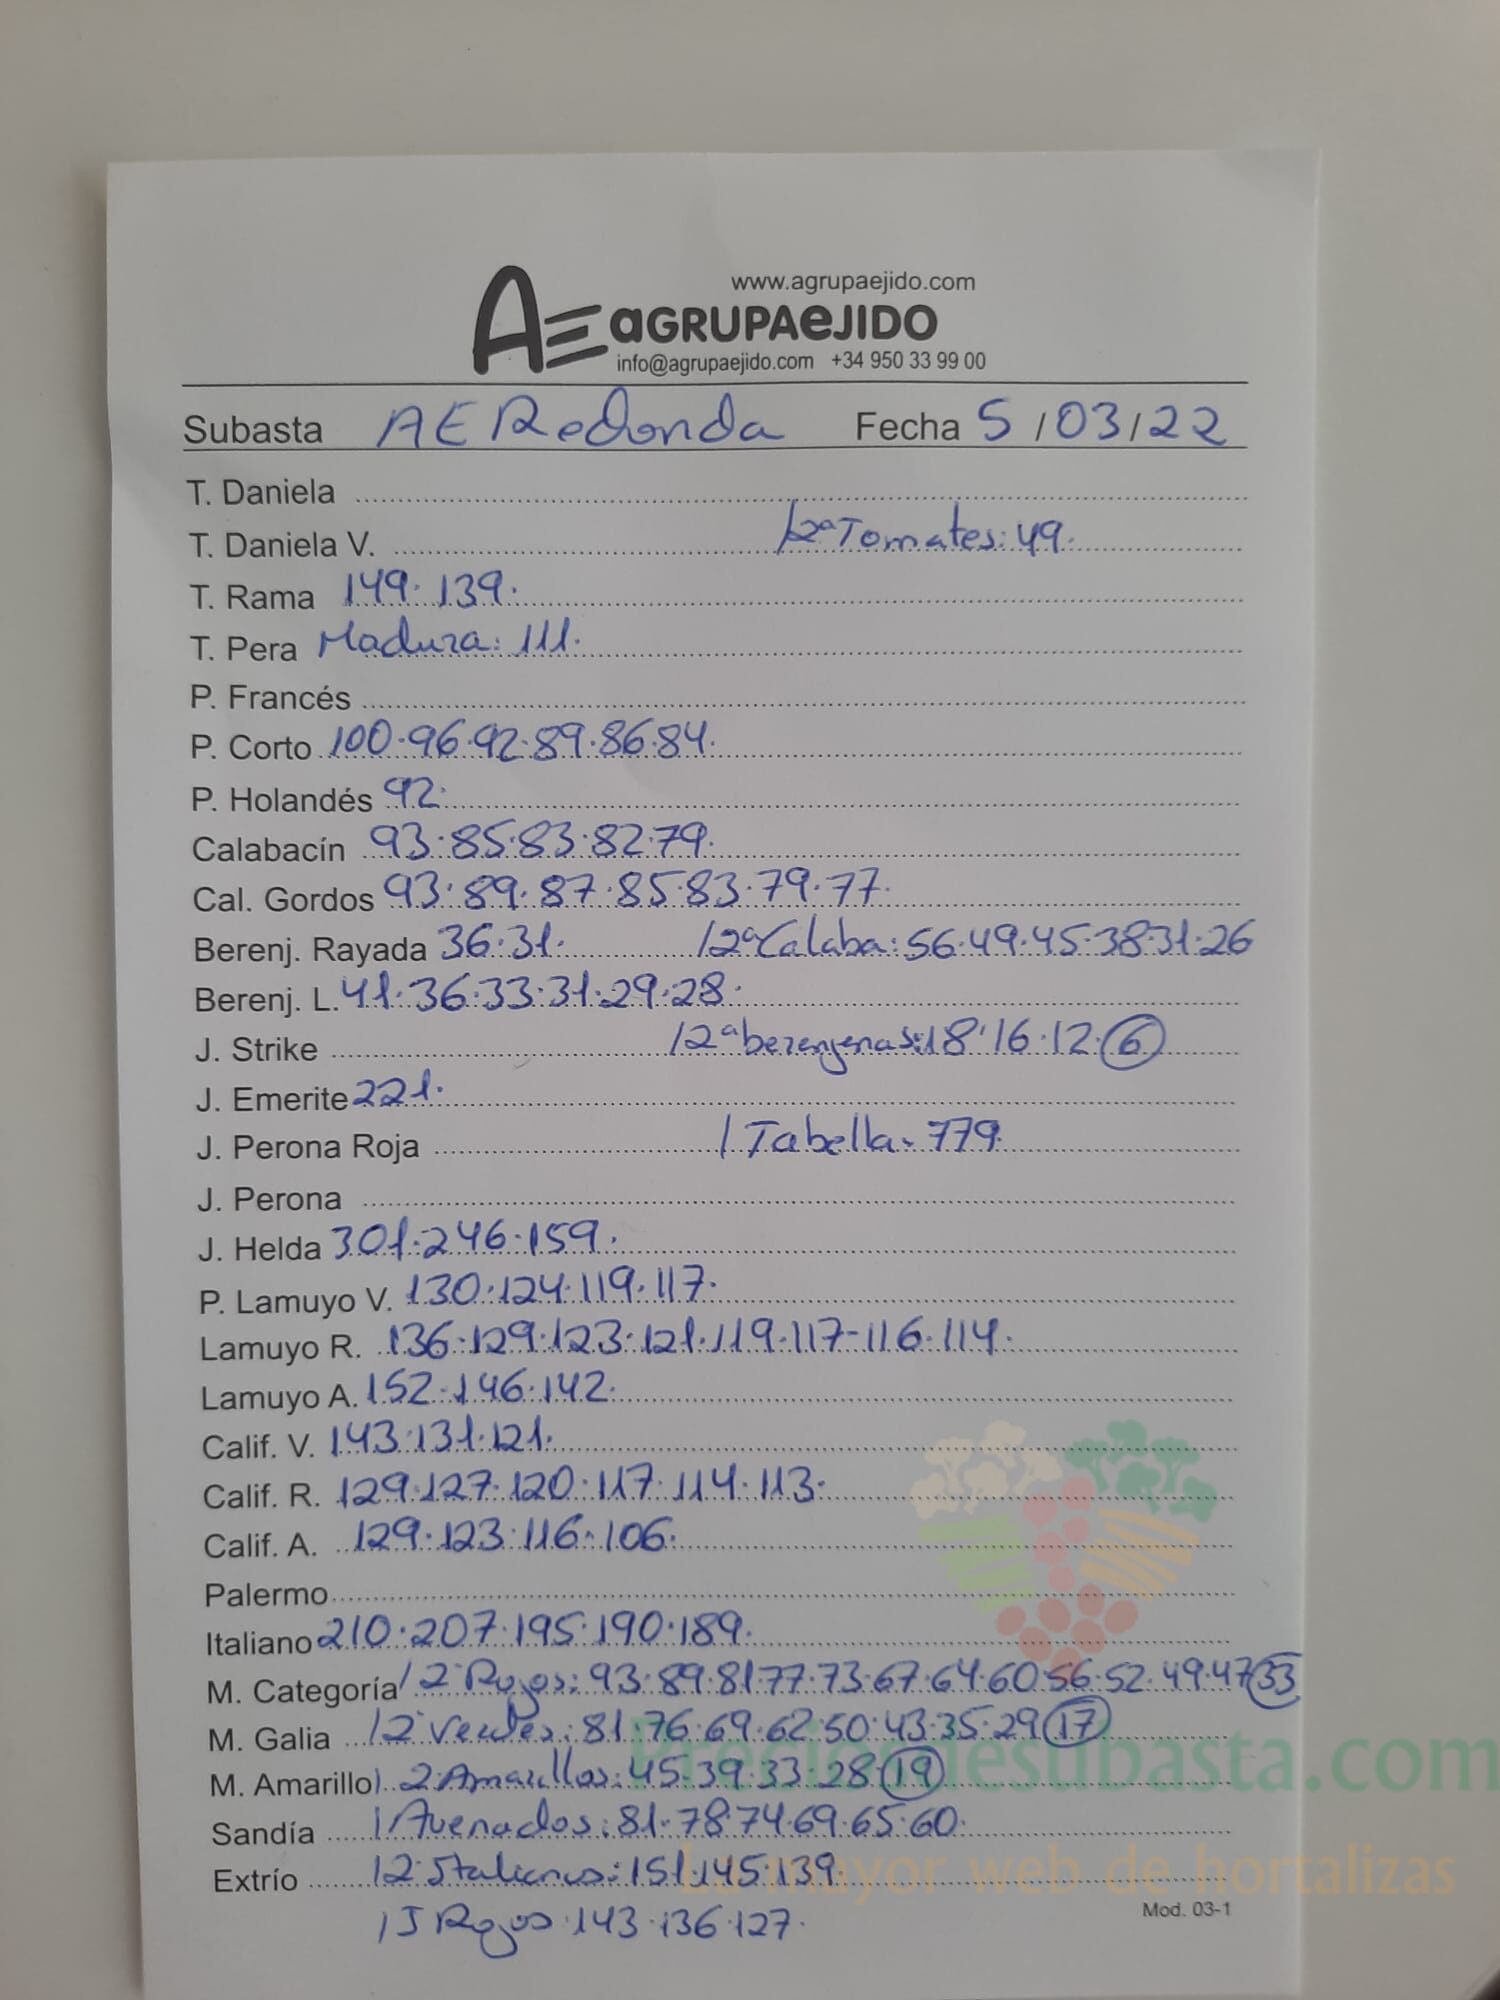 www.agrupaejido.com
AE aGRUPAeJIDO
info@agrupaejido.com +34 950 33 99 00
Subasta AE Redonda Fecha 5/03/22
T. Daniela
T. Daniela V. /2ª Tomates: 49.
T. Rama 149. 139.
T. Pera Madura: 111.
P. Francés
P. Corto 100.96.92.89.86.84.
P. Holandés 92.
Calabacín 93.85.83.82.79.
Cal. Gordos 93.89.87.85.83.79.77.
Berenj. Rayada 36.31. /2ª Calaba: 56.49.45.38.31.26
Berenj. L. 41.36.33.31.29.28.
J. Strike /2ª berenjenas: 18.16.12.6
J. Emerite 221.
J. Perona Roja / Tabella. 779.
J. Perona
J. Helda 301.246.159.
P. Lamuyo V. 130.124.119.117.
Lamuyo R. 136.129.123.121.119.117-116.114.
Lamuyo A. 152.146.142.
Calif. V. 143.131.121.
Calif. R. 129.127.120.117.114.113.
Calif. A. 129.123.116.106.
Palermo
Italiano 210.207.195.190.189.
M. Categoría / 2ª Rojos: 93.89.81.77.73.67.64.60.56.52.49.47 33
M. Galia / 2ª Verdes: 81.76.69.62.50.43.35.29 17
M. Amarillo / 2ª Amarillos: 45.39.33.28.19
Sandía / Avenados: 81.78.74.69.65.60.
Extrío / 2ª Italianos: 151.145.139.
/ J Rojos. 143.136.127.
Mod. 03-1
Preciosdesubasta.com
La mayor web de hortalizas